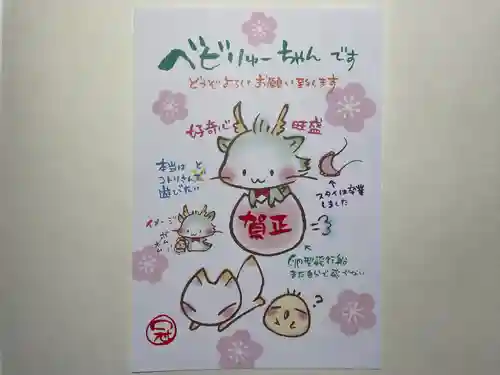 べびりゅーちゃんです
どうぞよろしくお願い致します
好奇心
旺盛
本当は
コトリさんと
遊びたい
スタイは卒業
しました
イメージ
賀正
卵型飛行船
まだ自分で飛べない
?